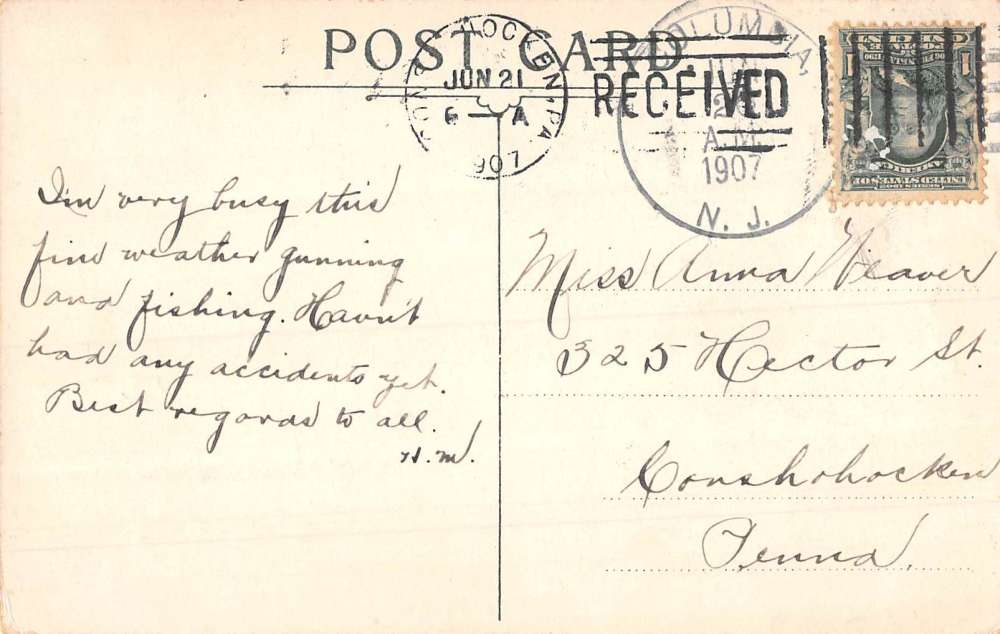 POST CARD
CONSHOHOCKEN, PA.
JUN 21
6 — A
1907
RECEIVED
COLUMBIA,
JUN
A.M.
1907
N. J.
I'm very busy this
fine weather gunning
and fishing. Havn't
had any accidents yet.
Best regards to all.
H. M.
Miss Anna Weaver
325 Hector St.
Conshohocken
Penna.